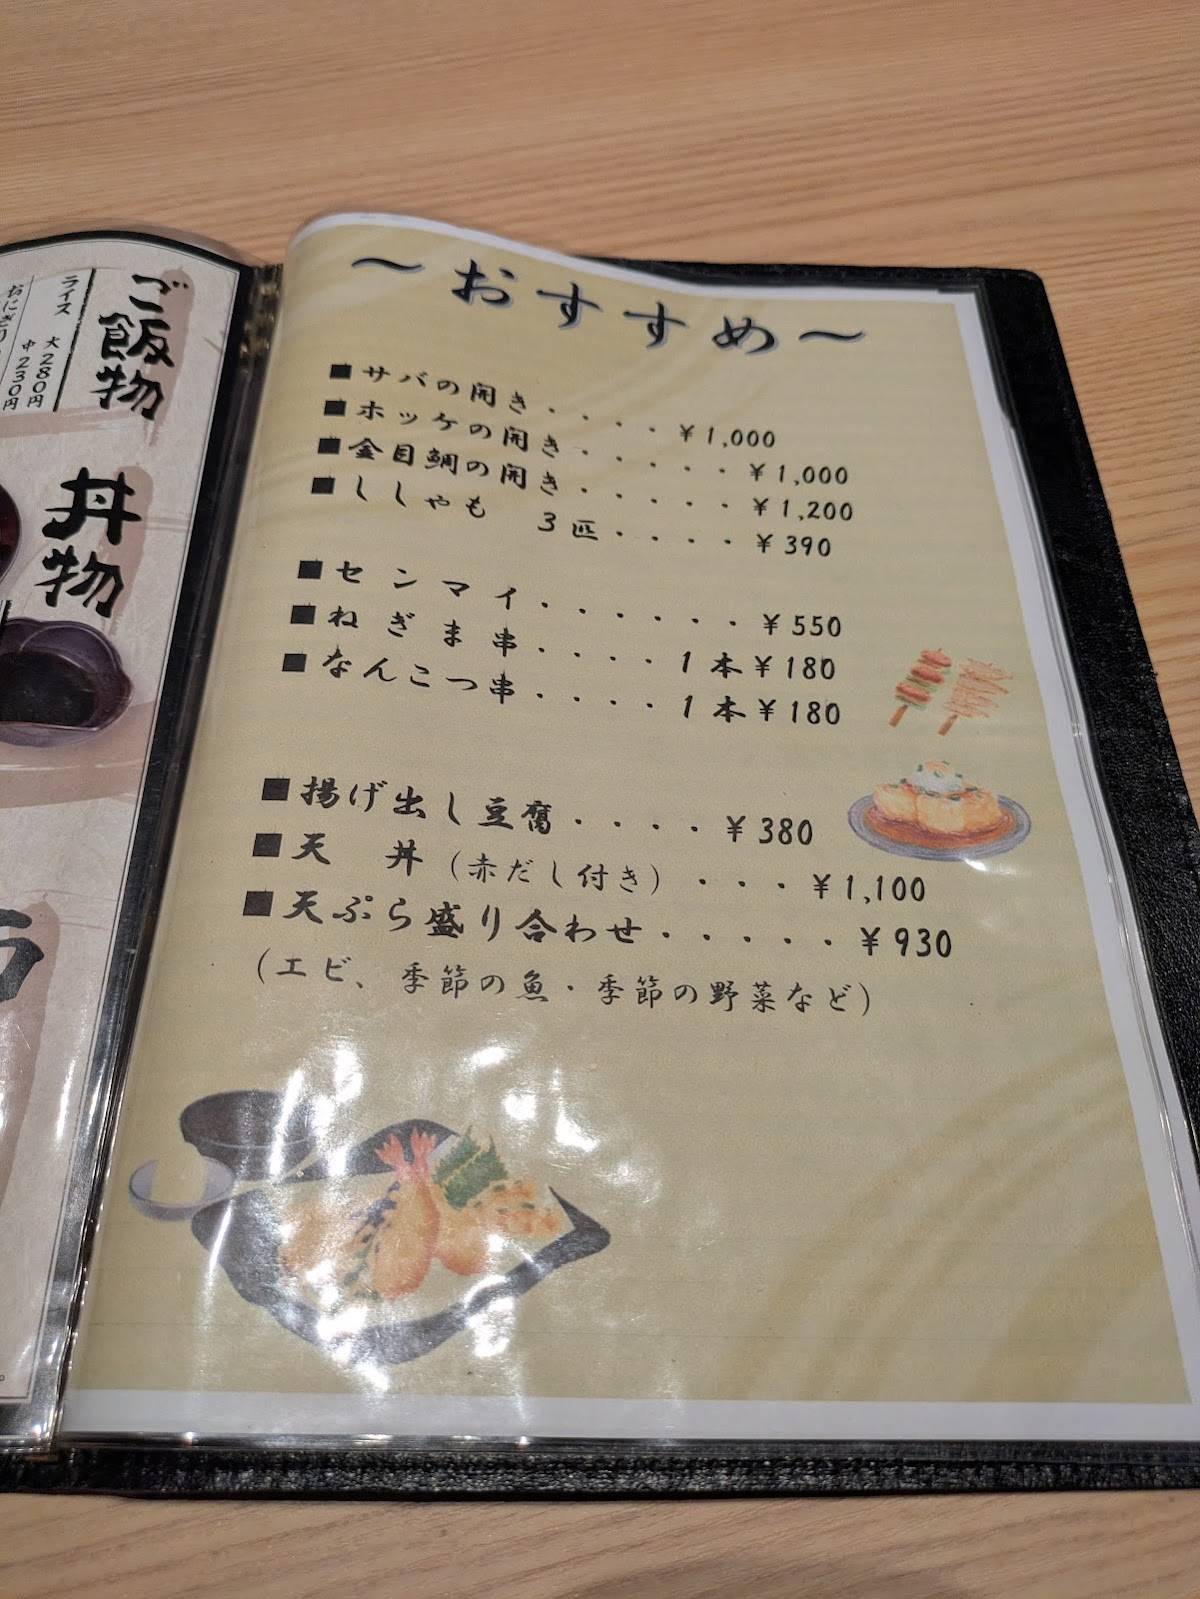 ご飯物
ライス 大280円
中230円
おにぎり
丼物
～おすすめ～
■サバの開き・・・・¥1,000
■ホッケの開き・・・・・¥1,000
■金目鯛の開き・・・・・¥1,200
■ししゃも 3匹・・・・¥390
■センマイ・・・・・・¥550
■ねぎま串・・・・1本¥180
■なんこつ串・・・・1本¥180
■揚げ出し豆腐・・・・¥380
■天 丼（赤だし付き）・・・¥1,100
■天ぷら盛り合わせ・・・・・¥930
（エビ、季節の魚・季節の野菜など）